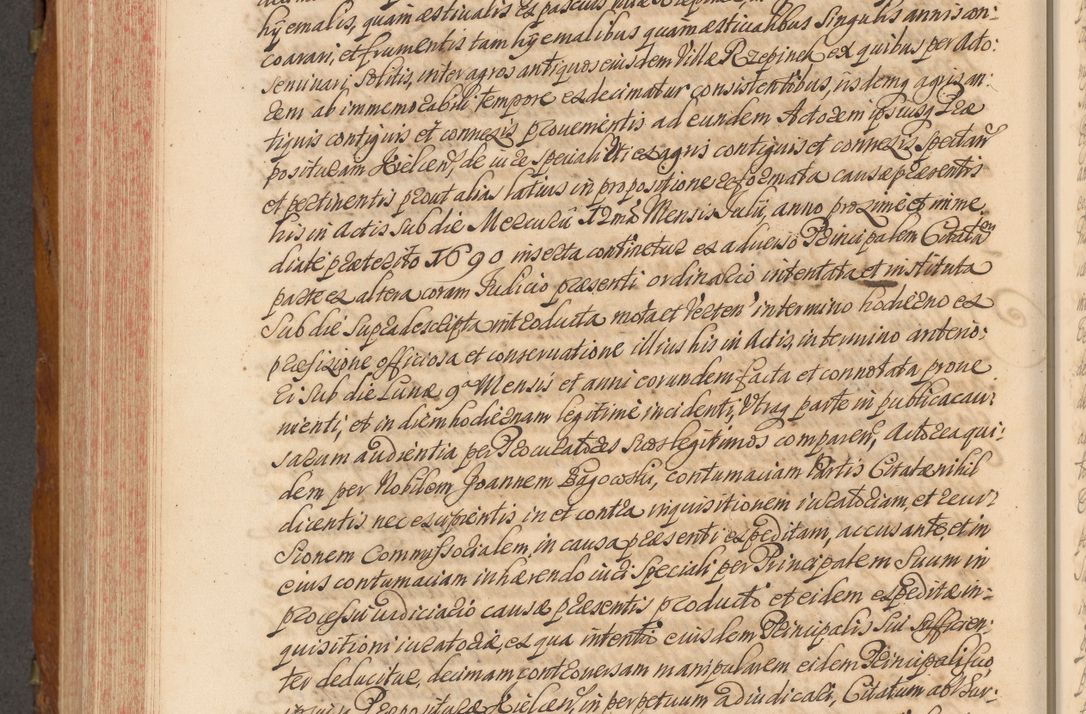 hyemalis, quam æstivalis ex pascuis
coarari, et frumentis tam hyemalibus quam æstivalibus singulis annis con-
seminari, solitis, inter agros antiquos eiusdem Villæ Rzepinek ex quibus per Acto:
rem ab immemorabili tempore exdecimatur consistentibus, iisdemq agris an:
tiquis contiguis et connexis provenientis ad eundem Actorem ipsiusq Præ
posituram Kielcen, de iure speciali et ex agris contiguis et connexis spectan
et pertinentis prout alias latius in propositione reformata causæ præsentis
his in Actis sub die Mercurii 12ma Mensis Julii, anno proxime et imme
diate præterito 1690 inserta continetur ex adverso Principalem Citatam
parte ex altera coram Judicio præsenti ordinario intentata et instituta
sub die supra descripta introducta mota et verten in termino hodierno ex
præfixione officiosa et conservatione illius his in Actis, in termino anterio:
ri sub die Lunæ 9a Mensis et anni eorundem facta et connotata prove
nienti, et in diem hodiernam legitime incidenti, Utraq parte in publica cau:
sarum audientia per Procuratores suos legitimos comparen, Actorea qui:
dem per Nobilem Joannem Bagowski, contumaciam Partis Citatæ nihil
dicentis nec excipientis, in et contra inquisitionem iuratoriam, et recur:
sionem Commissorialem, in causa præsenti expeditam, accusante, et in
eius contumaciam inhærendo iuri speciali per Principalem Suum in
processu iudiciario causæ præsentis producto et eidem expeditæ in:
quisitioni iuratoriæ, ex qua intentio eiusdem Principalis Sui sufficien:
ter deducitur, decimam controversam manipularem eidem Principali suo
Præpositura Kielcen, in perpetuum adiudicari, Citatum ab